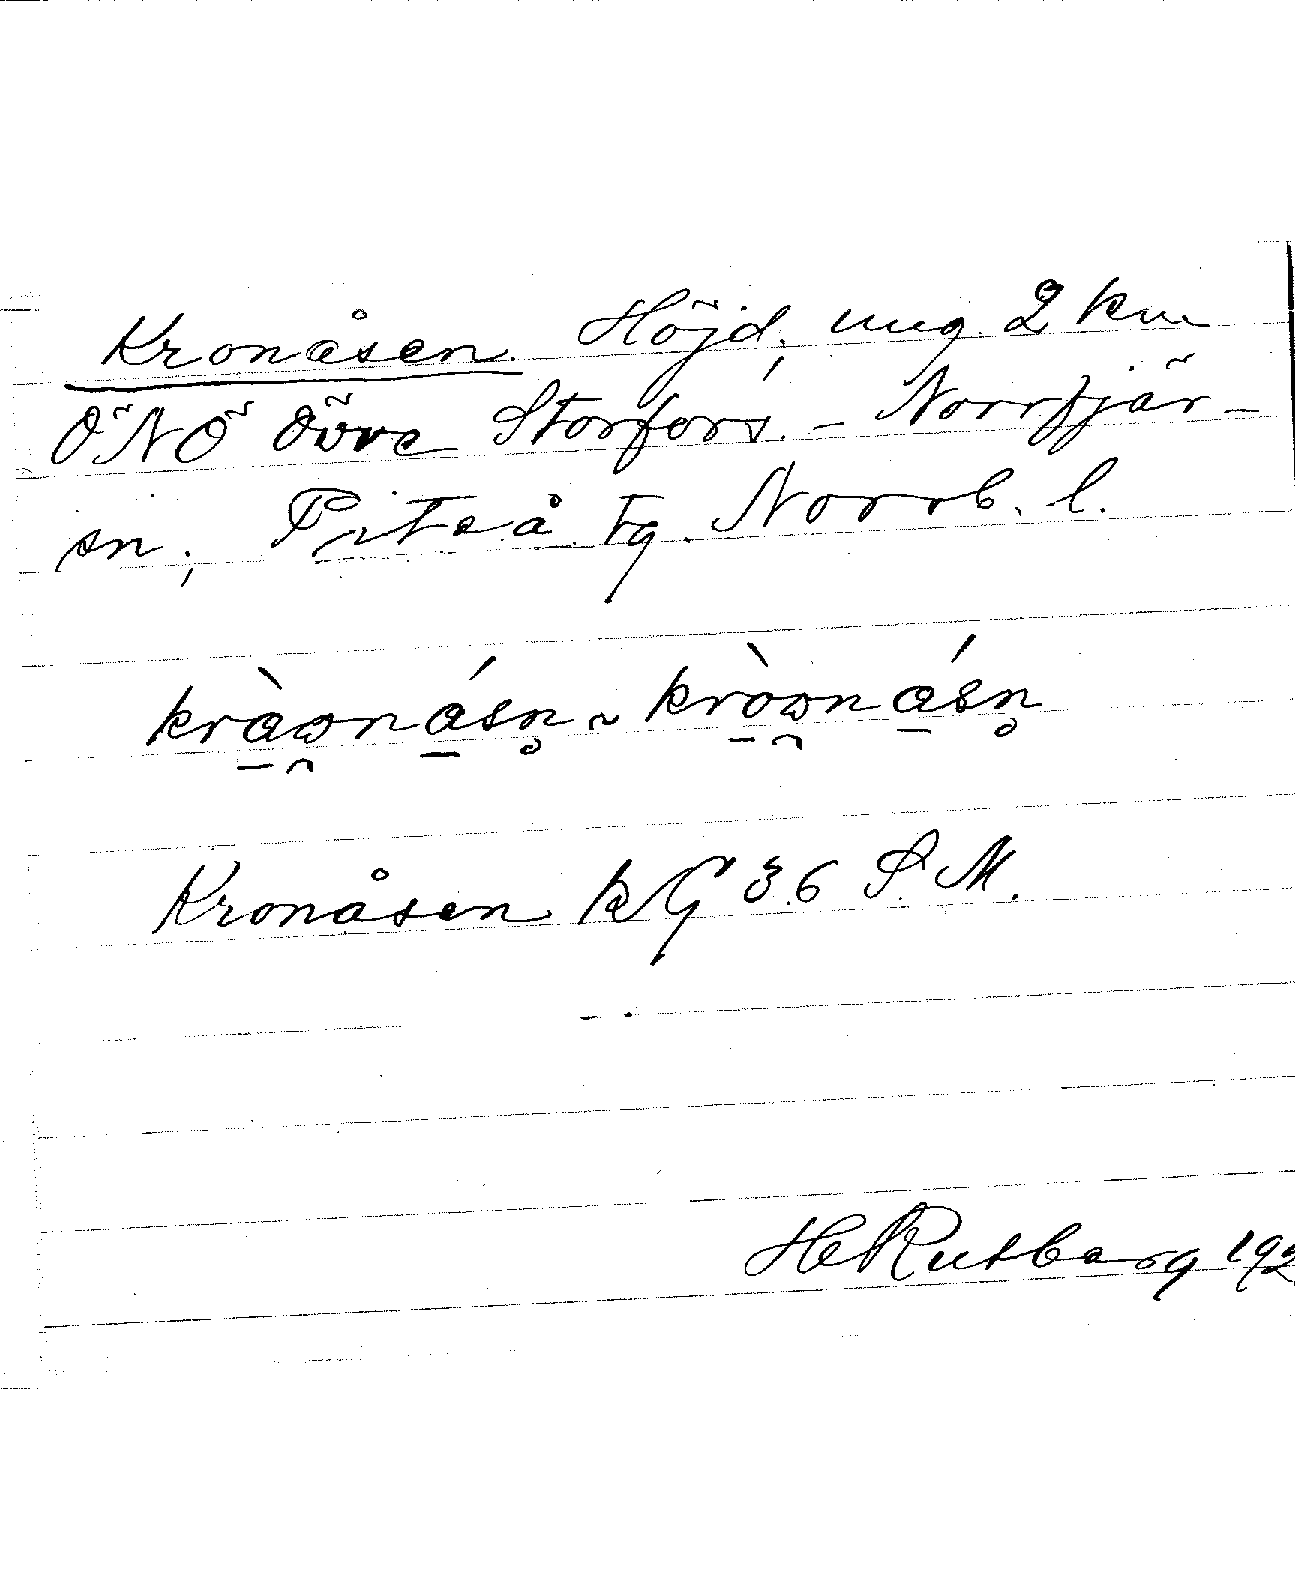 Kronåsen. Höjd; ung. 2 km
ÖNÖ Övre Storfors. - Norrfjär-
sn; Piteå tg. Norrb. l.
kràwnásn̥ ~ kròwnásn̥
Kronåsen kG 36 S.M.
HRutberg 192